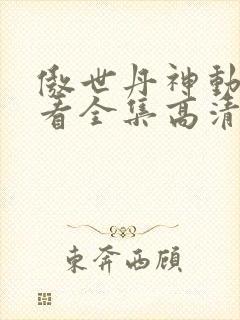 傲世丹神動
看全集高清
東奔西顧